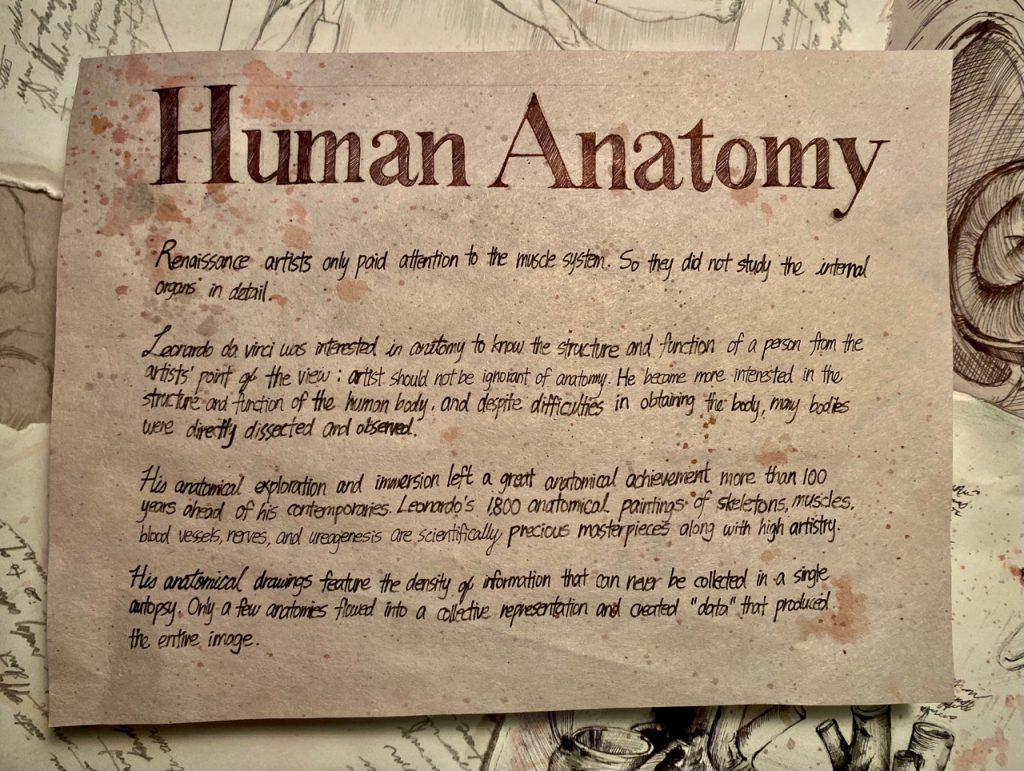 Human Anatomy
Renaissance artists only paid attention to the muscle system. So they did not study the internal
organs in detail.
Leonardo da vinci was interested in anatomy to know the structure and function of a person from the
artists' point of the view : artist should not be ignorant of anatomy. He became more interested in the
structure and function of the human body. and despite difficulties in obtaining the body, may bodies
were directly dissected and observed.
His anatomical exploration and immersion left a great anatomical achievement more than 100
years ahead of his contemporaries. Leonardo's 1,800 anatomical paintings of skeletons, muscles,
blood vessels, nerves, and ureagenesis are scientifically precious masterpieces along with high artistry.
His anatomical drawings feature the density of information that can never be collected in a single
autopsy. Only a few anatomies flowed into a collective representation and created "data" that produced
the entire image.